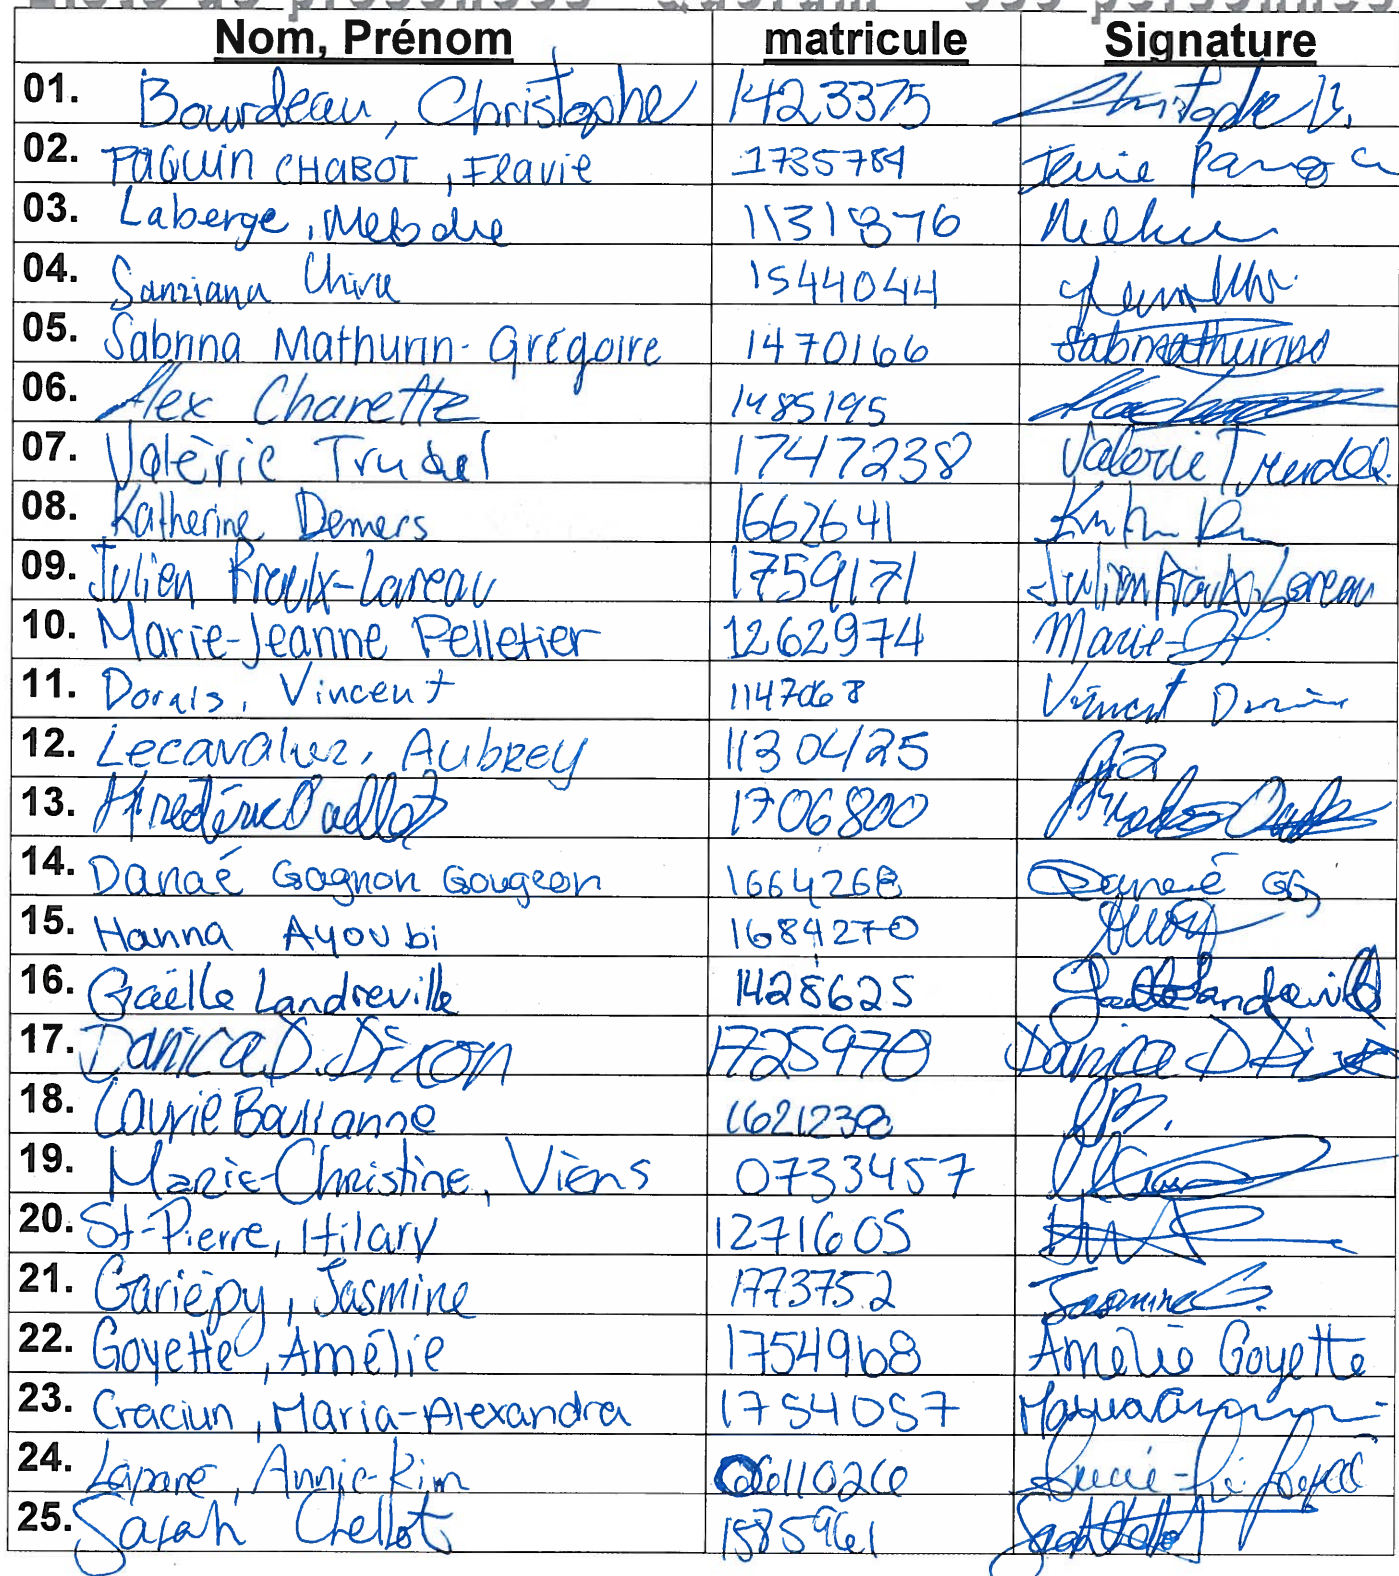 Liste de présences Quorum 
Nom, Prénom matricule Signature
01. Bourdeau, Christophe 1423375 Christophe B.
02. PAQUIN CHABOT, Flavie 1735784
03. Laberge, Mélodie 1131876
04. Sanziana Chiru 1544044
05. Sabrina Mathurin-Grégoire 1470166 Sabmathurin
06. Alex Charette 1485195
07. Valérie Trudel 1747238 Valérie Trudel
08. Katherine Demers 1662641
09. Julien Proulx-Lareau 1759171 Julien Proulx-Lareau
10. Marie-Jeanne Pelletier 1262974 Marie-JP.
11. Dorais, Vincent 1147068 Vincent Dorais
12. Lecavalier, Aubrey 1130425
13. Frédéric Ouellet 1706800
14. Danaé Gagnon Gougeon 1664268 Danaé GG
15. Hanna Ayoubi 1684270
16. Gaëlle Landreville 1428625 Gaëlle Landreville
17. Danica D. Dixon 1725970 Danica D Di
18. Laurie Boulianne 1621238 LB.
19. Marie-Christine, Viens 0733457
20. St-Pierre, Hilary 1271605
21. Gariépy, Jasmine 1773752 Jasmine G.
22. Goyette, Amélie 1754968 Amélie Goyette
23. Craciun, Maria-Alexandra 1754057
24. Laparé, Annie-Kim 0611026
25. Sarah Chellot 1585961